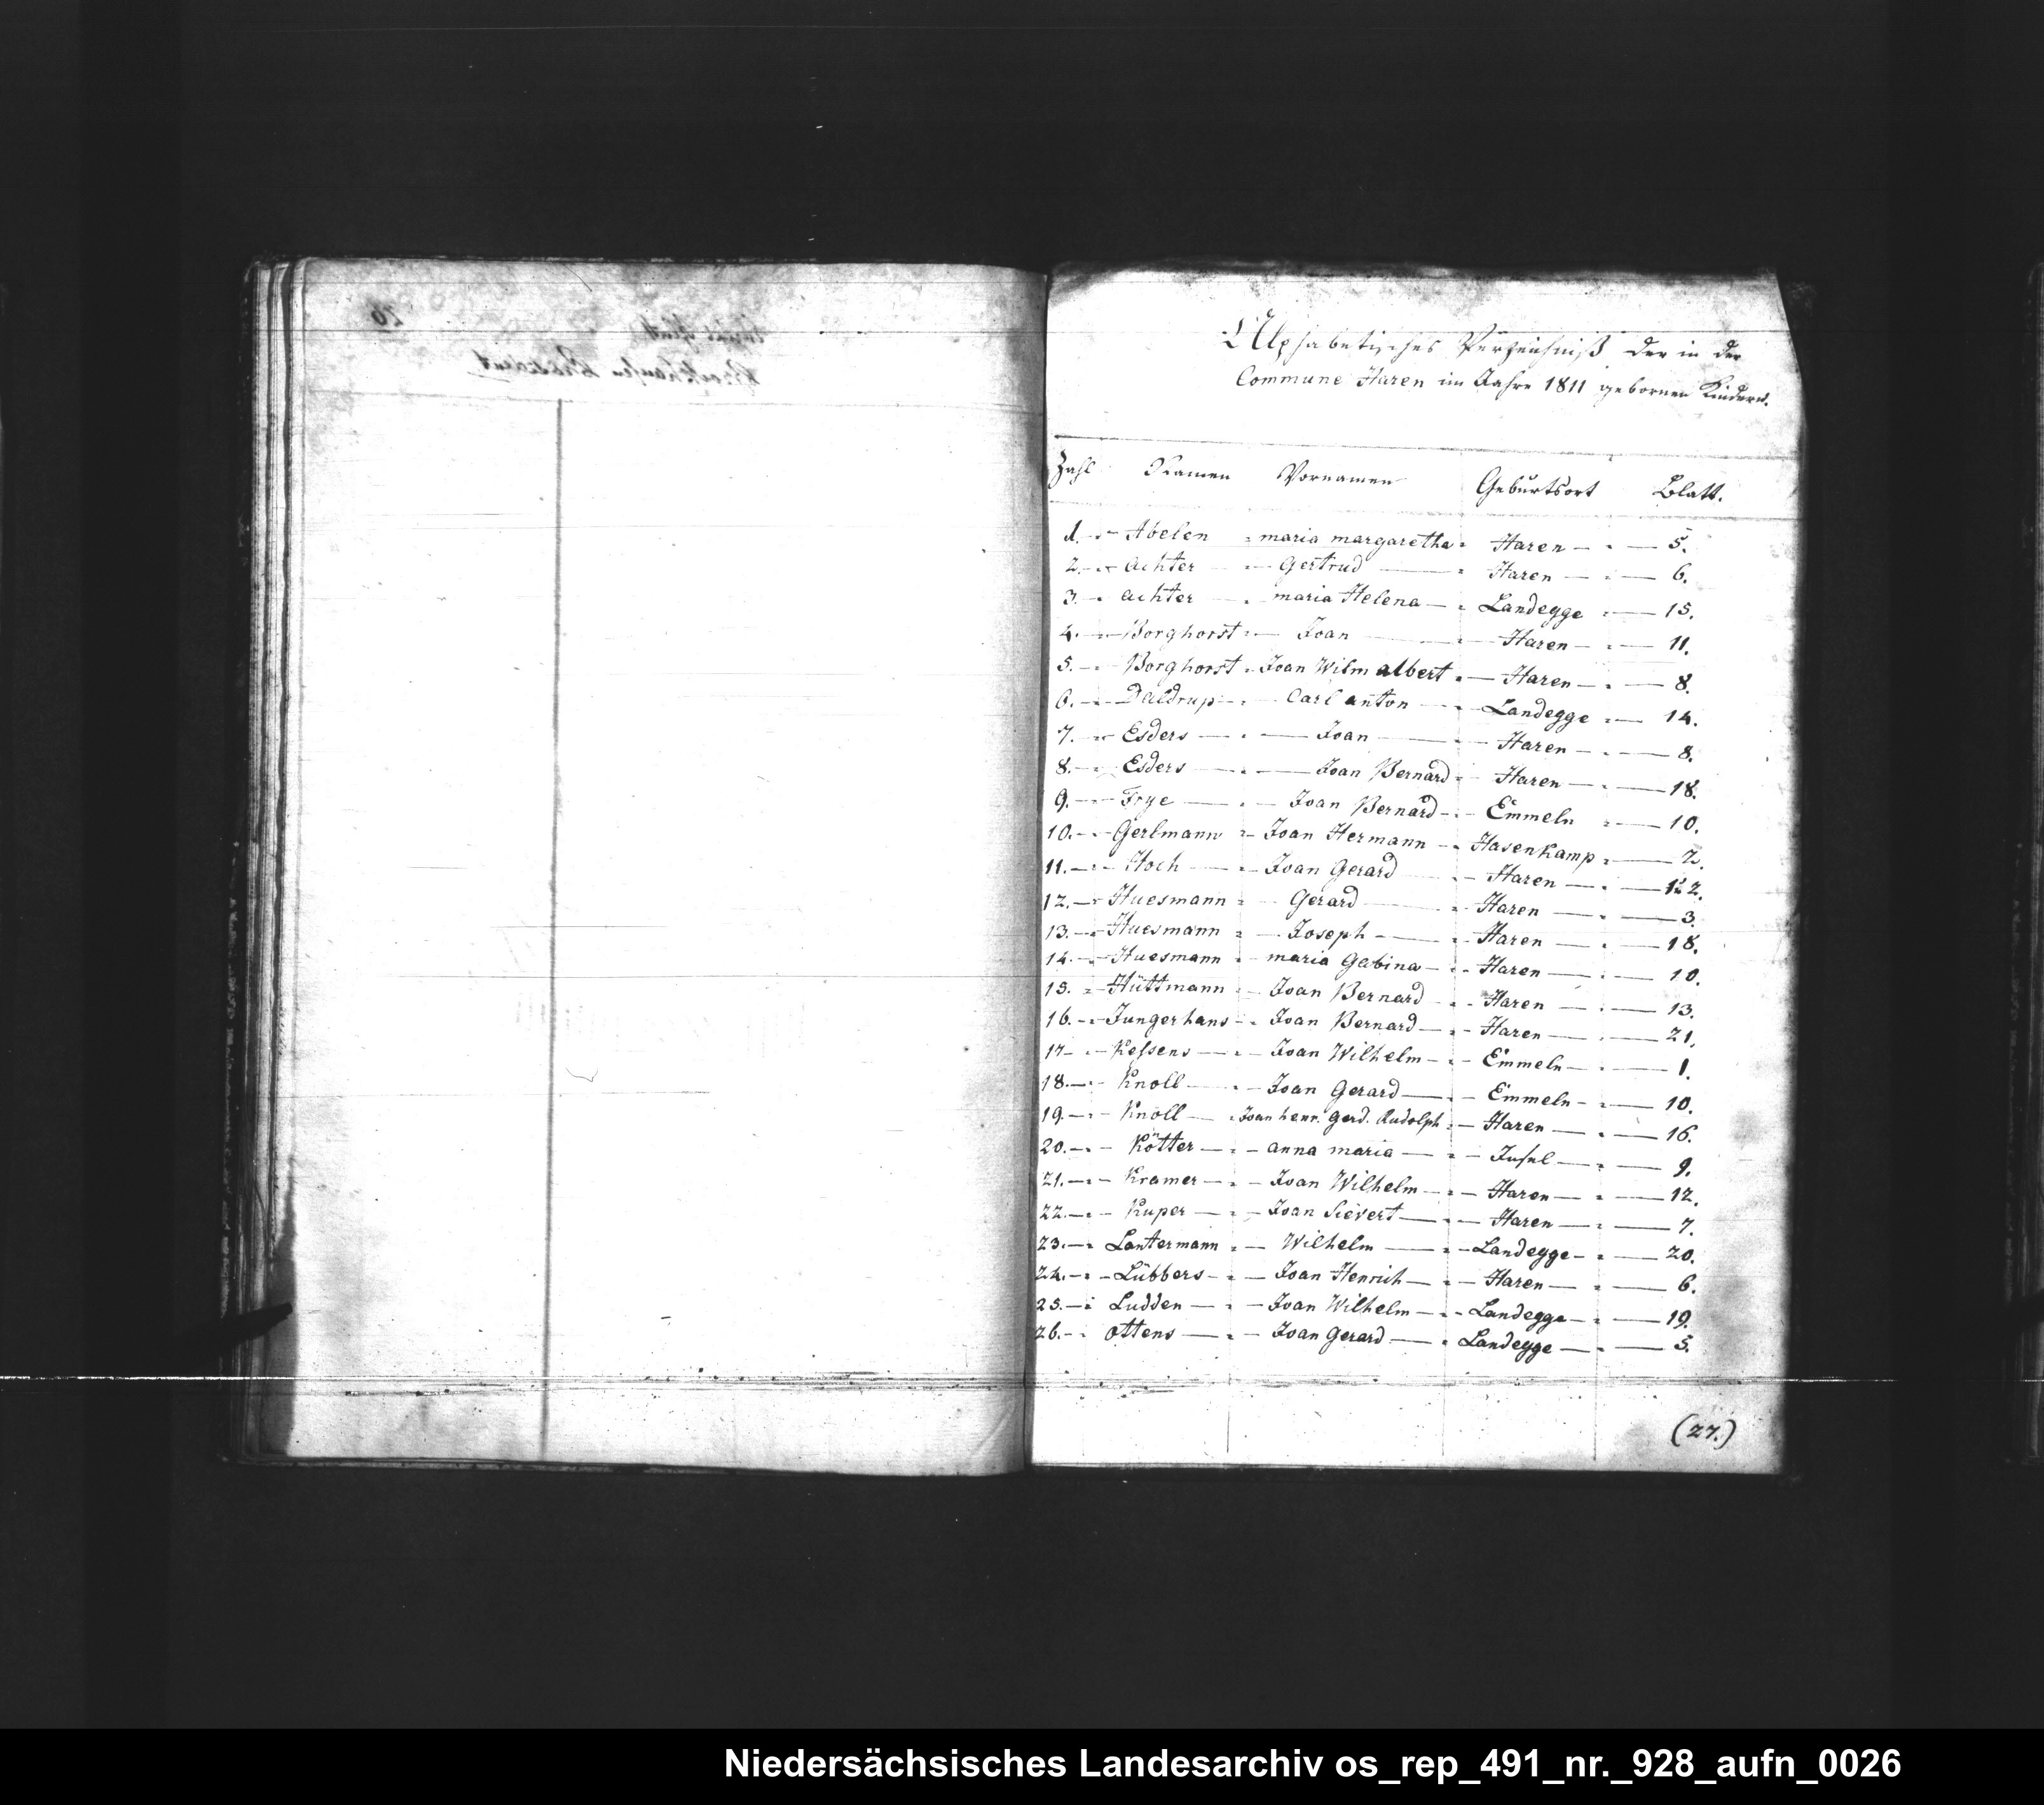 Alphabetisches Verzeichniß der in der
Commune Haren im Jahre 1811 gebornen Kindern.
Zahl Namen Vornamen Geburtsort Blatt.
1. Abelen maria margaretha Haren 5.
2. Achter Gertrud Haren 6.
3. Achter maria Helena Landegge 15.
4. Borghorst Joan Haren 11.
5. Borghorst Joan Wilm albert Haren 8.
6. Daldrup Carl anton Landegge 14.
7. Esders Joan Haren 8.
8. Esders Joan Bernard Haren 18.
9. Frye Joan Bernard Emmeln 10.
10. Gerlmann Joan Hermann Hasenkamp 2.
11. Hoch Joan Gerard Haren
12. Huesmann Gerard Haren 3.
13. Huesmann Joseph Haren 18.
14. Huesmann maria Gabina Haren 10.
15. Hüttmann Joan Bernard Haren 13.
16. Jungerhans Joan Bernard Haren 21.
17 Kessens Joan Wilhelm Emmeln 1.
18. Knoll Joan Gerard Emmeln 10.
19. Knoll Joan henr. Gerd. Rudolph Haren 16.
20. Kötter anna maria 9.
21. Kramer Joan Wilhelm Haren 12.
22. Kuper Joan Sievert Haren 7.
23. Lantermann Wilhelm Landegge 20.
24. Lübbers Joan Henrich Haren 6.
25. Ludden Joan Wilhelm Landegge 19.
26. Ottens Joan Gerard Landegge 5.
(27.)
Niedersächsisches Landesarchiv os_rep_491_nr._928_aufn_0026